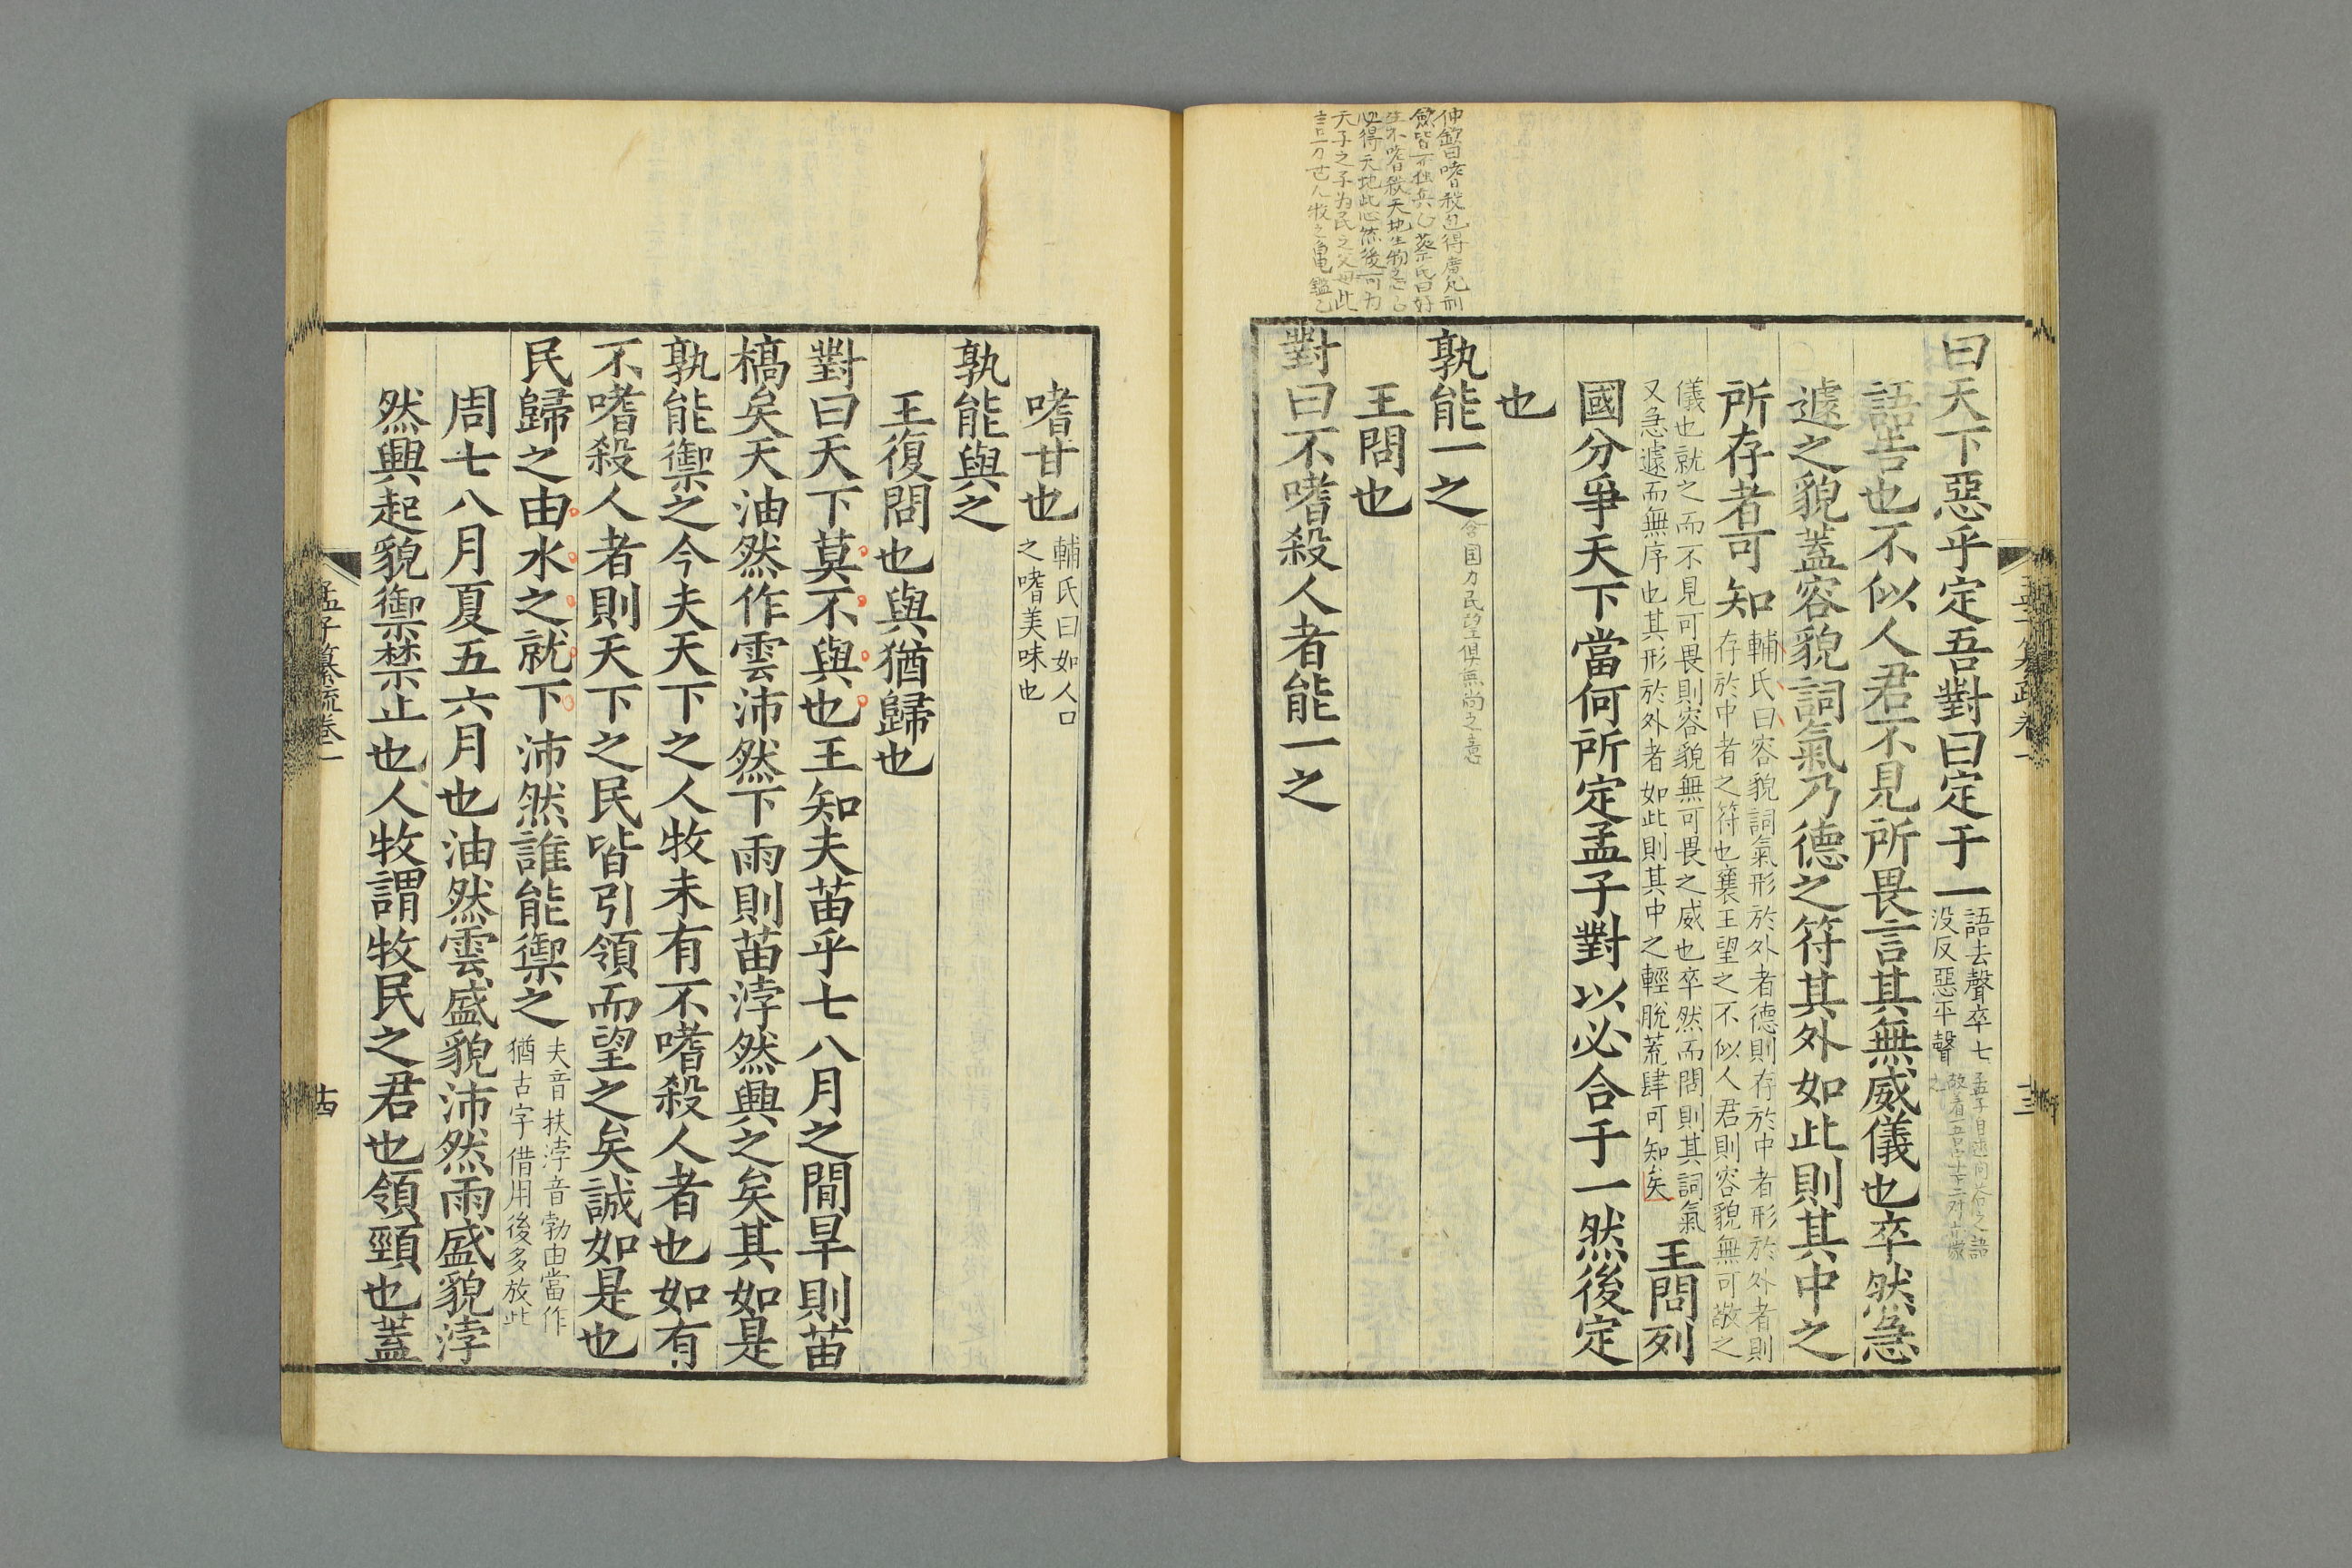 曰天下惡乎定吾對曰定于一語去聲卒七
没反惡平聲
語告也不似人君不見所畏言其無威儀也卒然急
遽之貌蓋容貌詞氣乃德之符其外如此則其中之
所存者可知輔氏曰容貌詞氣形於外者德則存於中者形於外者則
存於中者之符也襄王望之不似人君則容貌無可敬之
儀也就之而不見可畏則容貌無可畏之威也卒然而問則其詞氣
又急遽而無序也其形於外者如此則其中之輕脫荒肆可知矣王問列
國分爭天下當何所定孟子對以必合于一然後定
也
孰能一之
含国力民望俱無尚之意
王問也
對曰不嗜殺人者能一之
嗜甘也輔氏曰如人口
之嗜美味也
孰能與之
王復問也與猶歸也
對曰天下莫不與也王知夫苗乎七八月之間旱則苗
槁矣天油然作雲沛然下雨則苗浡然興之矣其如是
孰能禦之今夫天下之人牧未有不嗜殺人者也如有
不嗜殺人者則天下之民皆引領而望之矣誠如是也
民歸之由水之就下沛然誰能禦之夫音扶浡音勃由當作
猶古字借用後多放此
周七八月夏五六月也油然雲盛貌沛然雨盛貌浡
然興起貌禦禁止也人牧謂牧民之君也領頸也蓋
孟子纂疏卷一
十四